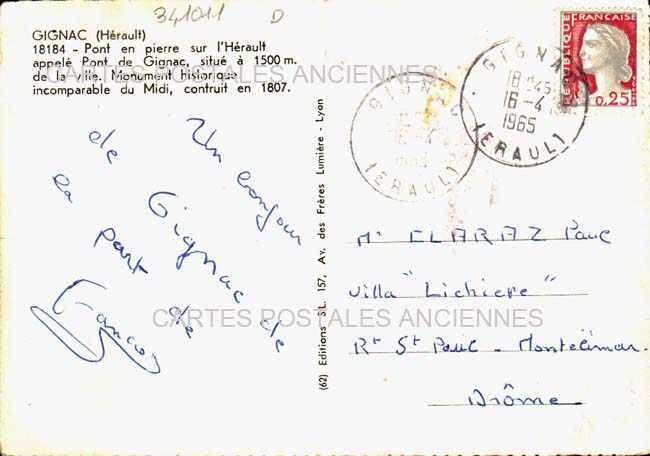 341011 D
GIGNAC (Hérault)
18184 - Pont en pierre sur l'Hérault
appelé Pont de Gignac, situé à 1500 m.
de la ville. Monument historique
incomparable du Midi, contruit en 1807.
CARTES POSTALES ANCIENNES
Un bonjour
de Gignac de
la part de
Francos
CARTES POSTALES ANCIENNES
(62) Editions S.L. 157, Av. des Frères Lumière - Lyon
GIGNAC
16-4
1965
(ERAULT)
GIGNAC
18H45
16-4
1965
(ERAULT)
REPUBLIQUE FRANÇAISE
0,25
Mr ELARAZ Paul
Villa "Lichiere"
Rt St Paul - Montélimar
Drôme